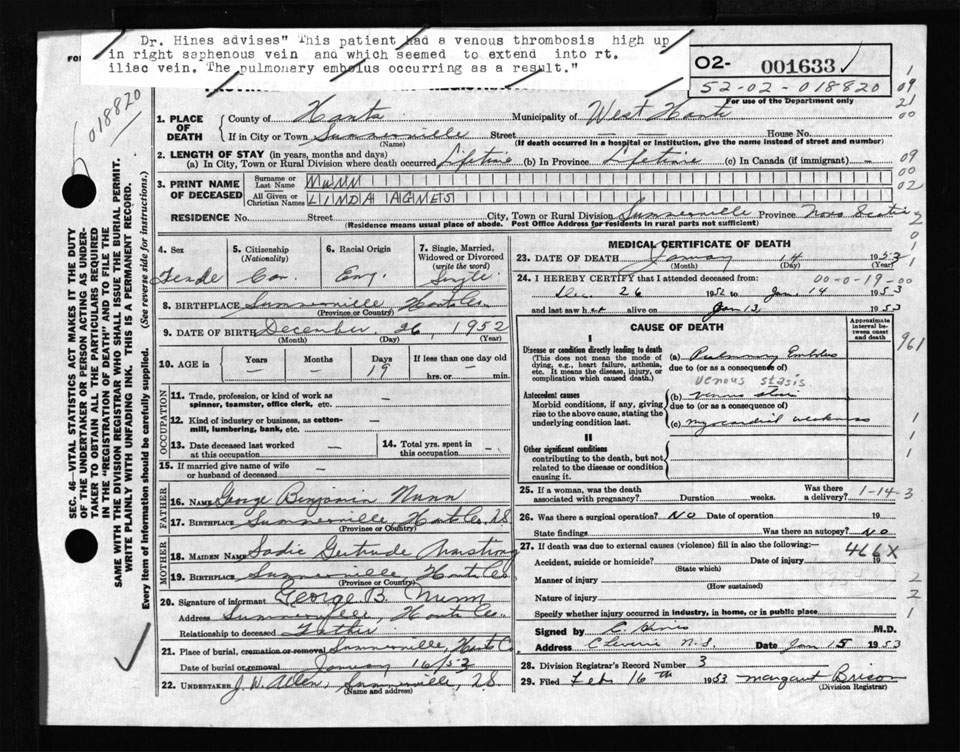 Dr. Hines advises" This patient had a venous thrombosis high up
in right saphenous vein and which seemed to extend into rt.
iliac vein. The pulmonary embolus occurring as a result."
O2- 001633
52-02-018820
For use of the Department only
018820
1. PLACE OF DEATH
County of Hants Municipality of West Hants
If in City or Town Summerville Street — — House No.
(Name) (If death occurred in a hospital or institution, give the name instead of street and number)
2. LENGTH OF STAY (in years, months and days)
(a) In City, Town or Rural Division where death occurred Lifetime (b) In Province Lifetime (c) In Canada (if immigrant) —
3. PRINT NAME OF DECEASED
Surname or Last Name NUNN
All Given or Christian Names LINDA AGNES
RESIDENCE No. Street City, Town or Rural Division Summerville Province Nova Scotia
(Residence means usual place of abode. Post Office Address for residents in rural parts not sufficient)
4. Sex
5. Citizenship (Nationality)
6. Racial Origin
7. Single, Married, Widowed or Divorced (write the word)
Female Can. Eng. Single
8. BIRTHPLACE Summerville Hants Co.
(Province or Country)
9. DATE OF BIRTH December 26, 1952
(Month) (Day) (Year)
10. AGE in Years — Months — Days 19 If less than one day old hrs. or — min.
OCCUPATION
11. Trade, profession, or kind of work as spinner, teamster, office clerk, etc. —
12. Kind of industry or business, as cotton-mill, lumbering, bank, etc. —
13. Date deceased last worked at this occupation —
14. Total yrs. spent in this occupation —
15. If married give name of wife or husband of deceased —
FATHER
16. NAME George Benjamin Nunn
17. BIRTHPLACE Summerville Hants Co. N.S.
(Province or Country)
MOTHER
18. MAIDEN NAME Sadie Gertrude Armstrong
19. BIRTHPLACE Summerville Hants Co.
(Province or Country)
20. Signature of informant George B. Nunn
Address Summerville, Hants Co.
Relationship to deceased Father
21. Place of burial, cremation or removal Summerville, Hants Co
Date of burial or removal January 16/53
22. UNDERTAKER J. W. Allen, Summerville, N.S.
(Name and address)
MEDICAL CERTIFICATE OF DEATH
23. DATE OF DEATH January 14 1953
(Month) (Day) (Year)
24. I HEREBY CERTIFY that I attended deceased from: 00-0-19-00
Dec. 26 1952 to Jan 14 1953
and last saw her alive on Jan 13, 1953
CAUSE OF DEATH
Approximate interval between onset and death
I
Disease or condition directly leading to death
(This does not mean the mode of dying, e.g., heart failure, asthenia, etc. It means the disease, injury, or complication which caused death.)
(a) Pulmonary Embolus
due to (or as a consequence of)
venous stasis
Antecedent causes
Morbid conditions, if any, giving rise to the above cause, stating the underlying condition last.
(b) venous stasis
due to (or as a consequence of)
(c) myocardial weakness
II
Other significant conditions
contributing to the death, but not related to the disease or condition causing it.
25. If a woman, was the death associated with pregnancy? Duration weeks. Was there a delivery? 1-14-3
26. Was there a surgical operation? NO Date of operation 19
State findings Was there an autopsy? NO
27. If death was due to external causes (violence) fill in also the following:— 466X
Accident, suicide or homicide? Date of injury 19
(State which)
Manner of injury
(How sustained)
Nature of injury
Specify whether injury occurred in industry, in home, or in public place
Signed by Hines M.D.
Address N.S. Date Jan 15 1953
28. Division Registrar's Record Number 3
29. Filed Feb 16th 1953 Margaret Brison
(Division Registrar)
SEC. 46—VITAL STATISTICS ACT MAKES IT THE DUTY
OF THE UNDERTAKER OR PERSON ACTING AS UNDER-
TAKER TO OBTAIN ALL THE PARTICULARS REQUIRED
IN THE "REGISTRATION OF DEATH" AND TO FILE THE
SAME WITH THE DIVISION REGISTRAR WHO SHALL ISSUE THE BURIAL PERMIT.
WRITE PLAINLY WITH UNFADING INK. THIS IS A PERMANENT RECORD.
Every item of information should be carefully supplied. (See reverse side for instructions.)
09
21
00
09
00
02
961